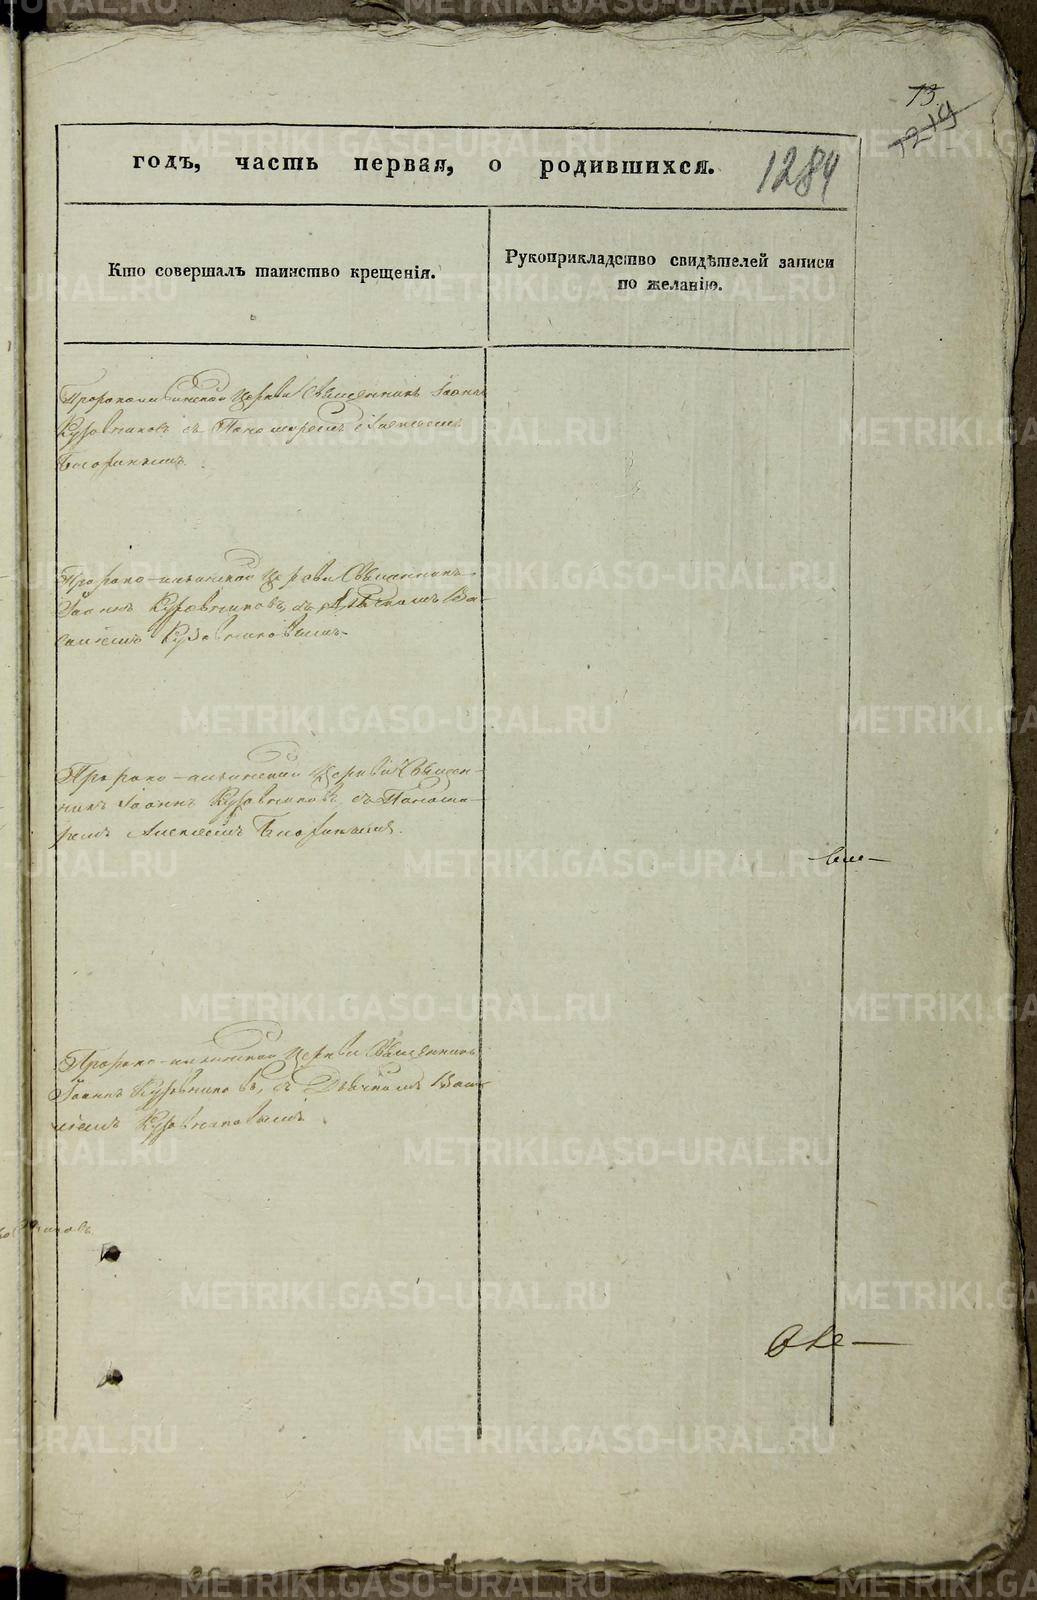 13
1219
годъ, часть первая, о родившихся. 1284
Кто совершалъ таинство крещенія.
Рукоприкладство свидѣтелей записи
по желанію.
Церкви Священникъ Іоаннъ
Кудовниковъ съ Пономаремъ Алексѣемъ
Пророко-ильинской Церкви Священникъ
Іоаннъ Кудовниковъ, съ Дьячкомъ Ва-
силіемъ Кудовниковымъ.
Пророко-ильинской Церкви Священ-
никъ Іоаннъ Кудовниковъ съ Понома-
ремъ Алексѣемъ
Пророко-ильинской Церкви Священникъ
Іоаннъ Кудовниковъ, съ Дьячкомъ Васи-
ліемъ Кудовниковымъ.
METRIKI.GASO-URAL.RU